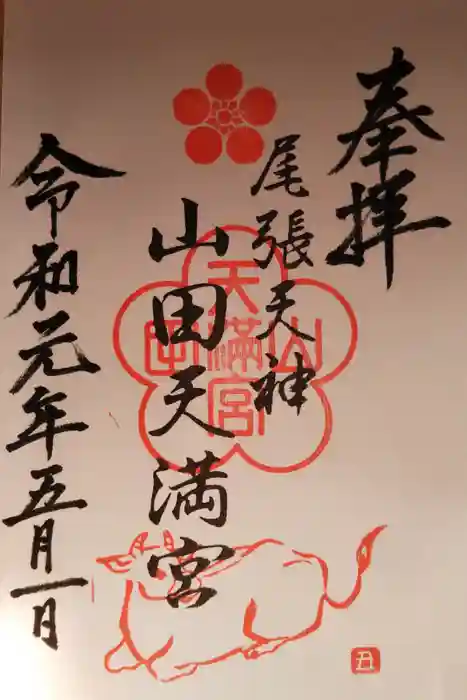 奉拝
尾張天神
山田天満宮
令和元年五月一日
山田天満宮
丑